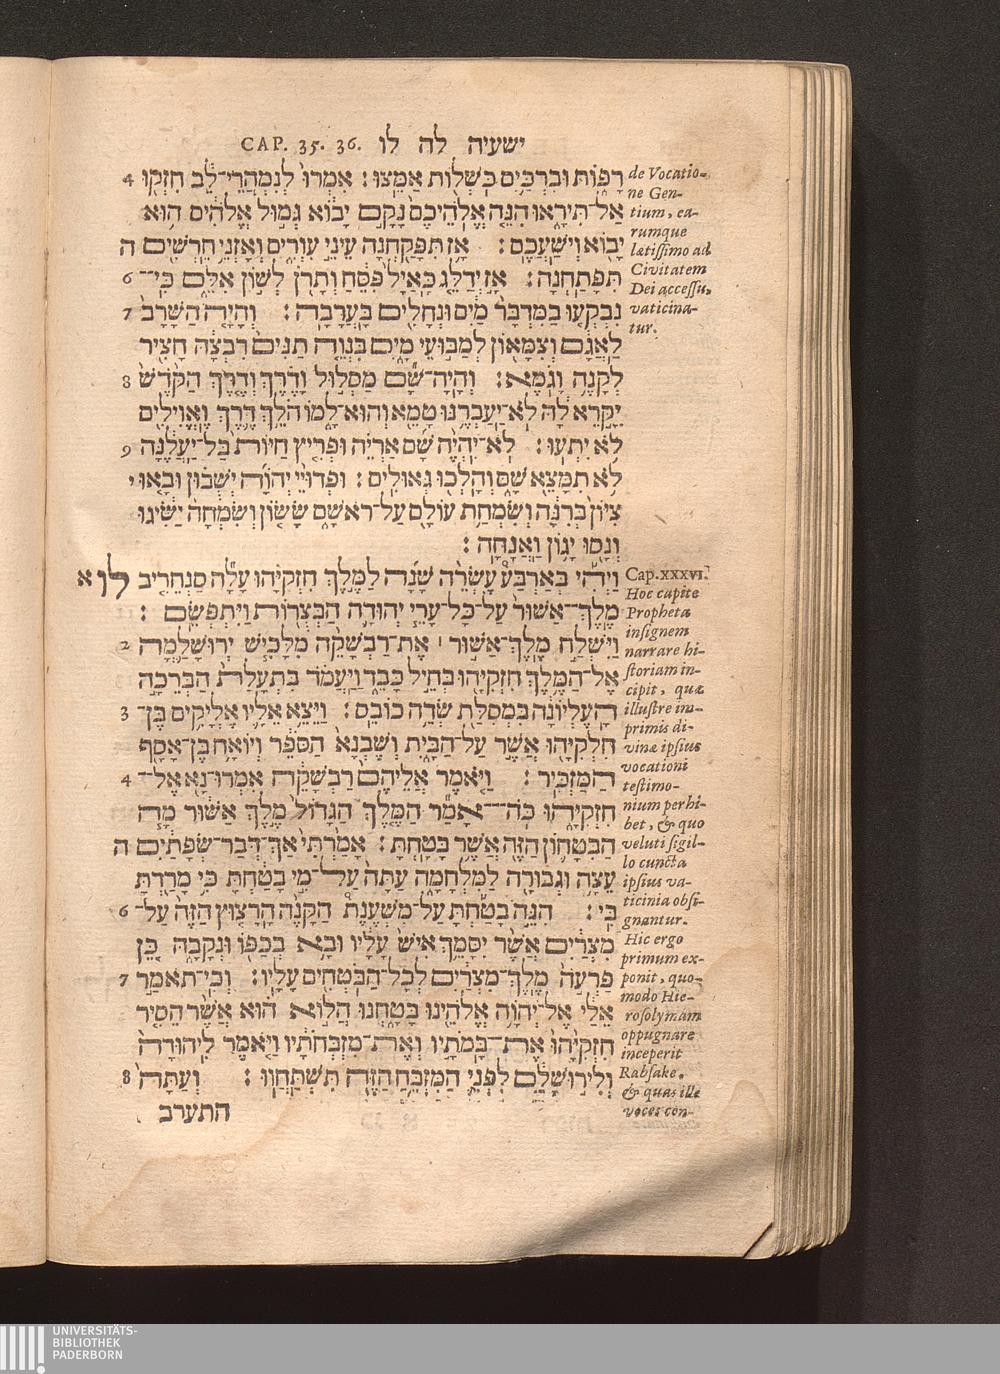 CAP. 35. 36. ישעיה לה לו
רָפ֑וֹת וּבִרְכַּ֥יִם כֹּשְׁל֖וֹת אַמֵּֽצוּ׃ אִמְרוּ֙ לְנִמְהֲרֵי־לֵ֔ב חִזְק֖וּ 4
אַל־תִּירָ֑אוּ הִנֵּ֤ה אֱלֹֽהֵיכֶם֙ נָקָ֣ם יָב֔וֹא גְּמ֣וּל אֱלֹהִ֔ים ה֥וּא
יָב֖וֹא וְיֹֽשַׁעֲכֶֽם׃ אָ֥ז תִּפָּקַ֖חְנָה עֵינֵ֣י עִוְרִ֑ים וְאָזְנֵ֥י חֵרְשִׁ֖ים ה
תִּפָּתַֽחְנָה׃ אָ֣ז יְדַלֵּ֤ג כָּֽאַיָּל֙ פִּסֵּ֔חַ וְתָרֹ֖ן לְשׁ֣וֹן אִלֵּ֑ם כִּֽי־ 6
נִבְקְע֤וּ בַמִּדְבָּר֙ מַ֔יִם וּנְחָלִ֖ים בָּעֲרָבָֽה׃ וְהָיָ֤ה הַשָּׁרָב֙ 7
לַאֲגַ֔ם וְצִמָּא֖וֹן לְמַבּ֣וּעֵי מָ֑יִם בִּנְוֵ֤ה תַנִּים֙ רִבְצָ֔הּ חָצִ֖יר
לְקָנֶ֥ה וָגֹֽמֶא׃ וְהָיָה־שָׁ֞ם מַסְל֣וּל וָדֶ֗רֶךְ וְדֶ֤רֶךְ הַקֹּ֙דֶשׁ֙ 8
יִקָּ֣רֵא לָ֔הּ לֹֽא־יַעַבְרֶ֥נּוּ טָמֵ֖א וְהוּא־לָ֑מוֹ הֹלֵ֥ךְ דֶּ֛רֶךְ וֶאֱוִילִ֖ים
לֹ֥א יִתְעֽוּ׃ לֹא־יִהְיֶ֨ה שָׁ֜ם אַרְיֵ֗ה וּפְרִ֤יץ חַיּוֹת֙ בַּֽל־יַעֲלֶ֔נָּה 9
לֹ֥א תִמָּצֵ֖א שָׁ֑ם וְהָלְכ֖וּ גְּאוּלִֽים׃ וּפְדוּיֵ֨י יְהוָ֜ה יְשֻׁב֗וּן וּבָ֤אוּ י
צִיּוֹן֙ בְּרִנָּ֔ה וְשִׂמְחַ֥ת עוֹלָ֖ם עַל־רֹאשָׁ֑ם שָׂשׂ֤וֹן וְשִׂמְחָה֙ יַשִּׂ֔יגוּ
וְנָ֖סוּ יָג֥וֹן וַאֲנָחָֽה׃
לו וַיְהִ֡י בְּאַרְבַּע֩ עֶשְׂרֵ֨ה שָׁנָ֜ה לַמֶּ֣לֶךְ חִזְקִיָּ֗הוּ עָלָ֞ה סַנְחֵרִ֤יב א
מֶֽלֶךְ־אַשּׁוּר֙ עַ֣ל כָּל־עָרֵ֧י יְהוּדָ֛ה הַבְּצֻר֖וֹת וַֽיִּתְפְּשֵֽׂם׃
וַיִּשְׁלַ֣ח מֶֽלֶךְ־אַשּׁ֣וּר ׀ אֶת־רַבְשָׁקֵ֨ה מִלָּכִ֧ישׁ יְרוּשָׁלְַ֛מָה 2
אֶל־הַמֶּ֥לֶךְ חִזְקִיָּ֖הוּ בְּחֵ֣יל כָּבֵ֑ד וַֽיַּעֲמֹ֗ד בִּתְעָלַת֙ הַבְּרֵכָ֣ה
הָעֶלְיוֹנָ֔ה בִּמְסִלַּ֖ת שְׂדֵ֥ה כוֹבֵֽס׃ וַיֵּצֵ֥א אֵלָ֛יו אֶלְיָקִ֥ים בֶּן־ 3
חִלְקִיָּ֖הוּ אֲשֶׁ֣ר עַל־הַבָּ֑יִת וְשֶׁבְנָא֙ הַסֹּפֵ֔ר וְיוֹאָ֥ח בֶּן־אָסָ֖ף
הַמַּזְכִּֽיר׃ וַיֹּ֤אמֶר אֲלֵיהֶם֙ רַבְשָׁקֵ֔ה אִמְרוּ־נָ֖א אֶל־ 4
חִזְקִיָּ֑הוּ כֹּֽה־אָמַ֞ר הַמֶּ֤לֶךְ הַגָּדוֹל֙ מֶ֣לֶךְ אַשּׁ֔וּר מָ֧ה
הַבִּטָּח֛וֹן הַזֶּ֖ה אֲשֶׁ֥ר בָּטָֽחְתָּ׃ אָמַ֙רְתִּי֙ אַךְ־דְּבַר־שְׂפָתַ֔יִם ה
עֵצָ֥ה וּגְבוּרָ֖ה לַמִּלְחָמָ֑ה עַתָּה֙ עַל־מִ֣י בָטַ֔חְתָּ כִּ֥י מָרַ֖דְתָּ
בִּֽי׃ הִנֵּ֣ה בָטַ֡חְתָּ עַל־מִשְׁעֶנֶת֩ הַקָּנֶ֨ה הָרָצ֤וּץ הַזֶּה֙ עַל־ 6
מִצְרַ֔יִם אֲשֶׁ֨ר יִסָּמֵ֥ךְ אִישׁ֙ עָלָ֔יו וּבָ֥א בְכַפּ֖וֹ וּנְקָבָ֑הּ כֵּ֚ן
פַּרְעֹ֣ה מֶֽלֶךְ־מִצְרַ֔יִם לְכָֽל־הַבֹּטְחִ֖ים עָלָֽיו׃ וְכִי־תֹאמַ֣ר 7
אֵלַ֔י אֶל־יְהוָ֥ה אֱלֹהֵ֖ינוּ בָּטָ֑חְנוּ הֲלוֹא־ ה֗וּא אֲשֶׁ֨ר הֵסִ֤יר
חִזְקִיָּ֙הוּ֙ אֶת־בָּמֹתָ֣יו וְאֶת־מִזְבְּחֹתָ֔יו וַיֹּ֤אמֶר לִֽיהוּדָה֙
וְלִיר֣וּשָׁלִַ֔ם לִפְנֵ֛י הַמִּזְבֵּ֥חַ הַזֶּ֖ה תִּֽשְׁתַּחֲוֽוּ׃ וְעַתָּה֙ 8
התערב
de Vocatio-
ne Gen-
tium, ea-
rumque
lætissimo ad
Civitatem
Dei accessu,
vaticina-
tur.
Cap. XXXVI.
Hoc capite
Propheta
insignem
narrare hi-
storiam in-
cipit, quæ
illustre im-
primis di-
vinæ ipsius
vocationi
testimo-
nium perhi-
bet, & quo
veluti sigil-
lo cuncta
ipsius va-
ticinia obsi-
gnantur.
Hic ergo
primum ex-
ponit, quo-
modo Hie-
rosolymam
oppugnare
inceperit
Rabsake.
& quas ille
voces con-
UNIVERSITÄTS-
BIBLIOTHEK
PADERBORN